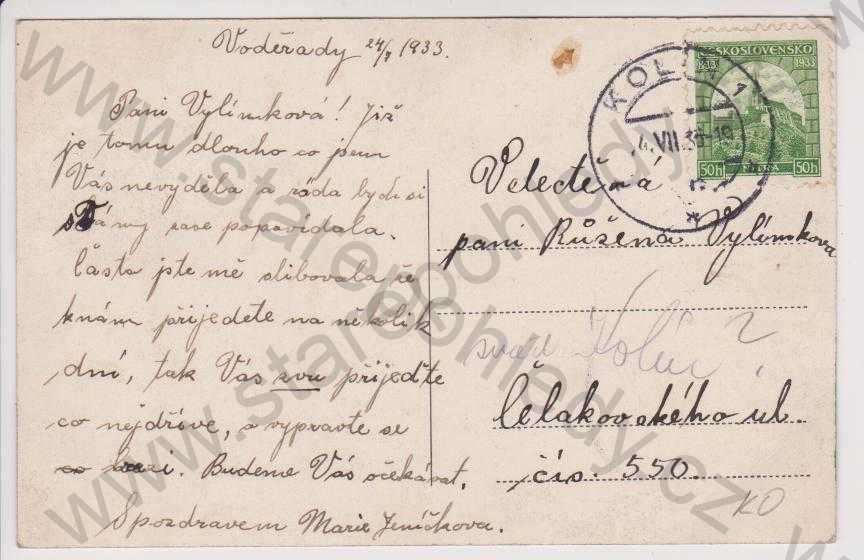 Voděrady 24/7 1933.
Paní Vylímková! Již
je tomu dlouho co jsem
Vás nevyděla a ráda bych si
s Vámy zase popovídala.
Často jste mě slibovala že
knám přijedete na několik
dní, tak Vás zvu přijeďte
co nejdříve, a vypravte se
Budeme Vás očekávat.
S pozdravem Marie Jeníčkova.
ČESKOSLOVENSKO
1933
50h 50h
KOLÍN 1
VII.33-19
Velectěná
paní Růžená Vylímkova
Kolín?
Čelakovského ul.
čís. 550.
KO
www.starepohledy.cz